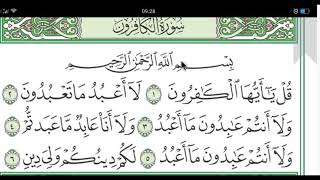 09.28
سُورَةُ الْكَافِرُونَ
بِسْمِ اللَّهِ الرَّحْمَٰنِ الرَّحِيمِ
قُلْ يَا أَيُّهَا الْكَافِرُونَ ١ لَا أَعْبُدُ مَا تَعْبُدُونَ ٢
وَلَا أَنتُمْ عَابِدُونَ مَا أَعْبُدُ ٣ وَلَا أَنَا عَابِدٌ مَّا عَبَدتُّمْ ٤
وَلَا أَنتُمْ عَابِدُونَ مَا أَعْبُدُ ٥ لَكُمْ دِينُكُمْ وَلِيَ دِينِ ٦